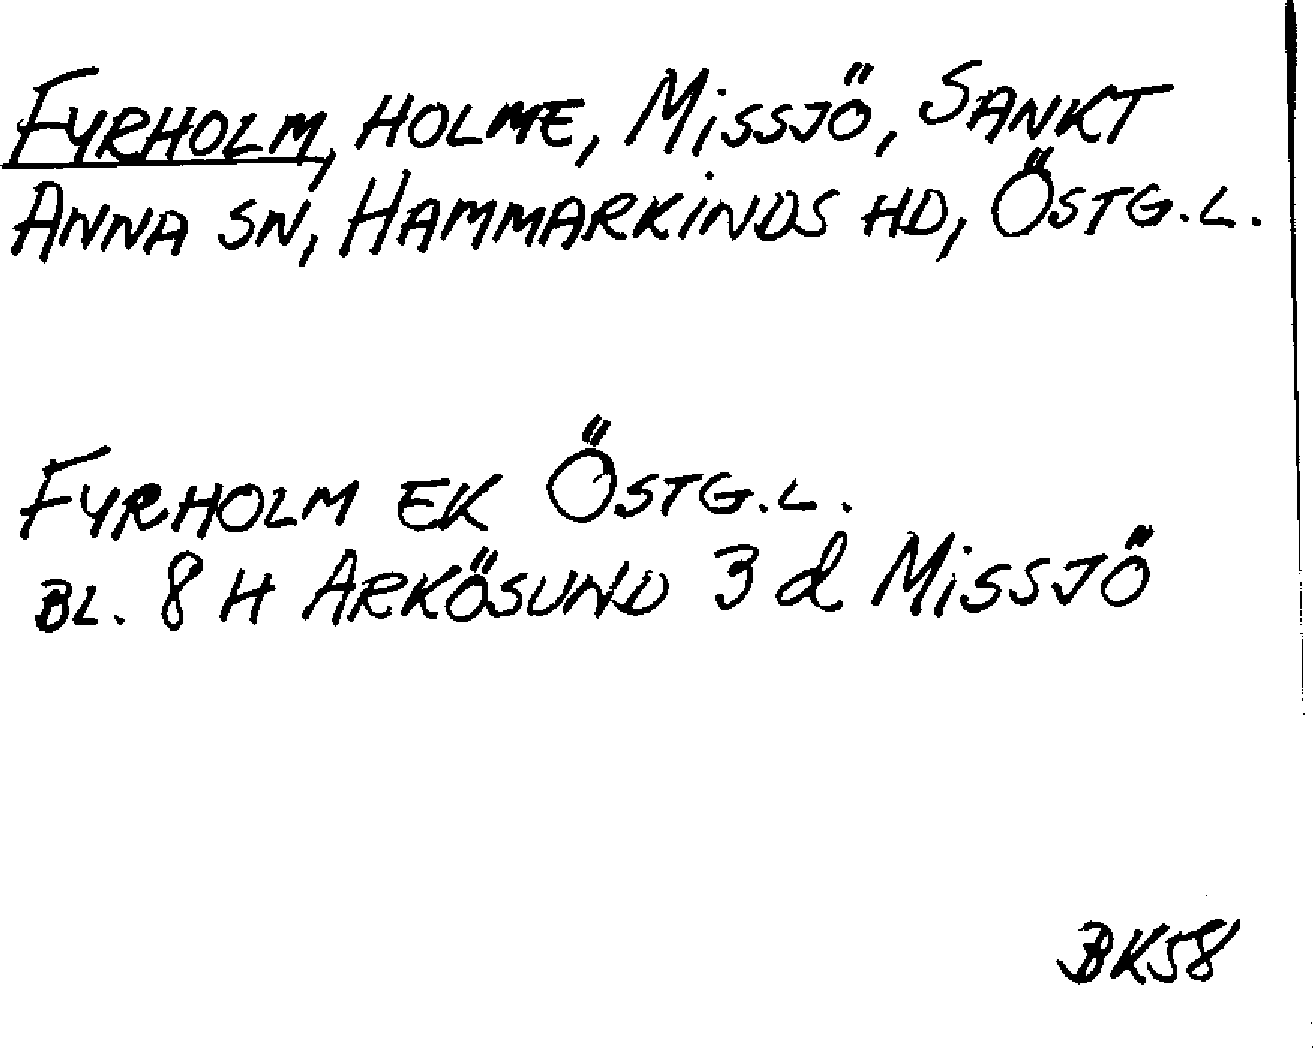 FYRHOLM, HOLME, MISSJÖ, SANKT
ANNA SN, HAMMARKINDS HD, ÖSTG.L.
FYRHOLM EK ÖSTG.L.
BL. 8 H ARKÖSUND 3 d MISSJÖ
BK58